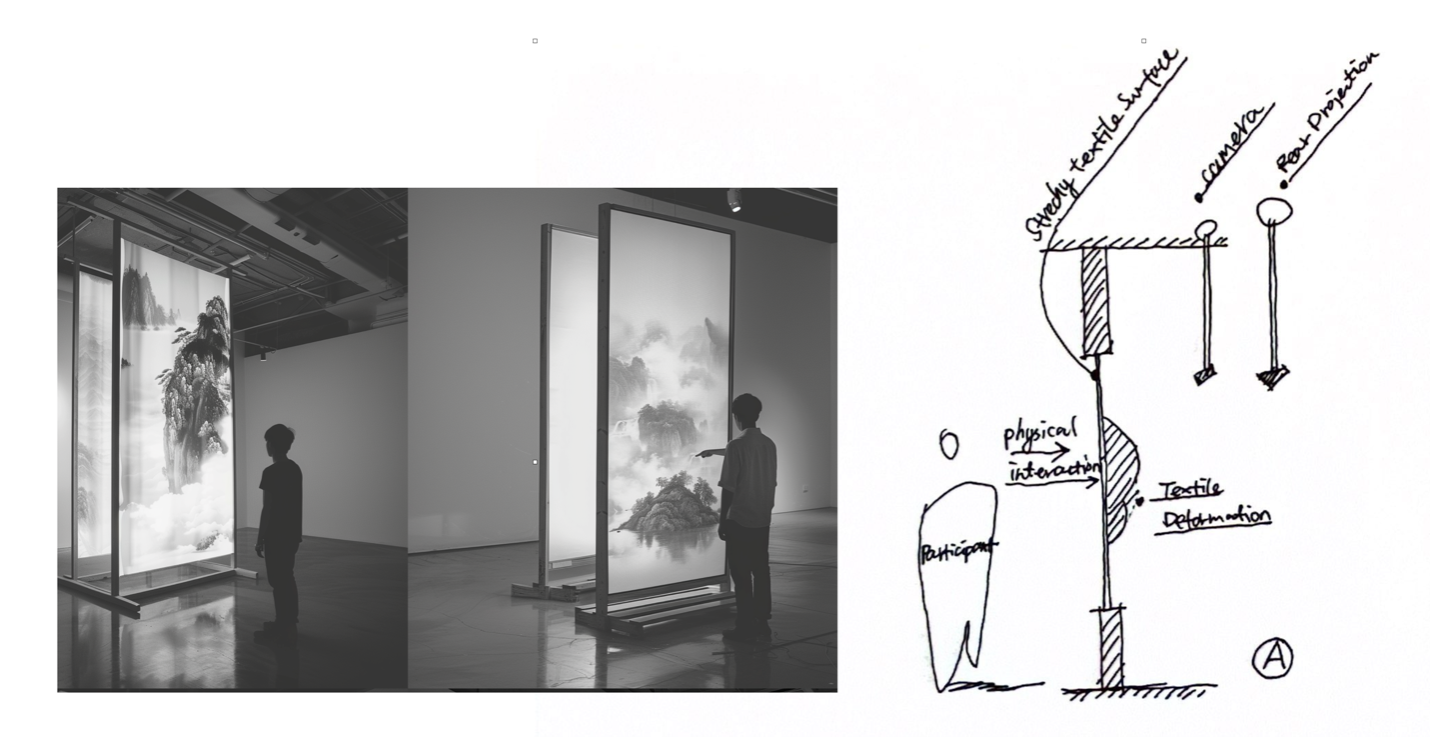 Strechy textile Surface
camera
Rear Projection
physical
interaction
Textile
Deformation
Participant
A